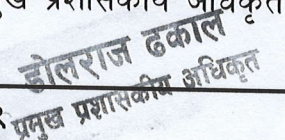 प्रशासकीय अधिकृत
डोलराज ढकाल
प्रमुख प्रशासकीय अधिकृत